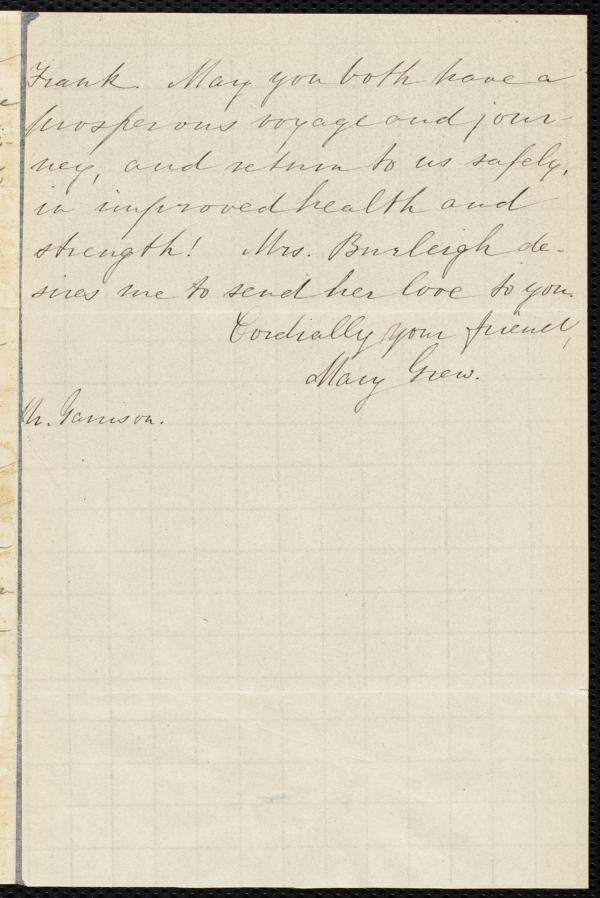 Frank. May you both have a
prosperous voyage and jour-
ney, and return to us safely,
in improved health and
strength! Mrs. Burleigh de-
sires me to send her love to you.
Cordially your friend,
Mary Grew.
Mr. Garrison.